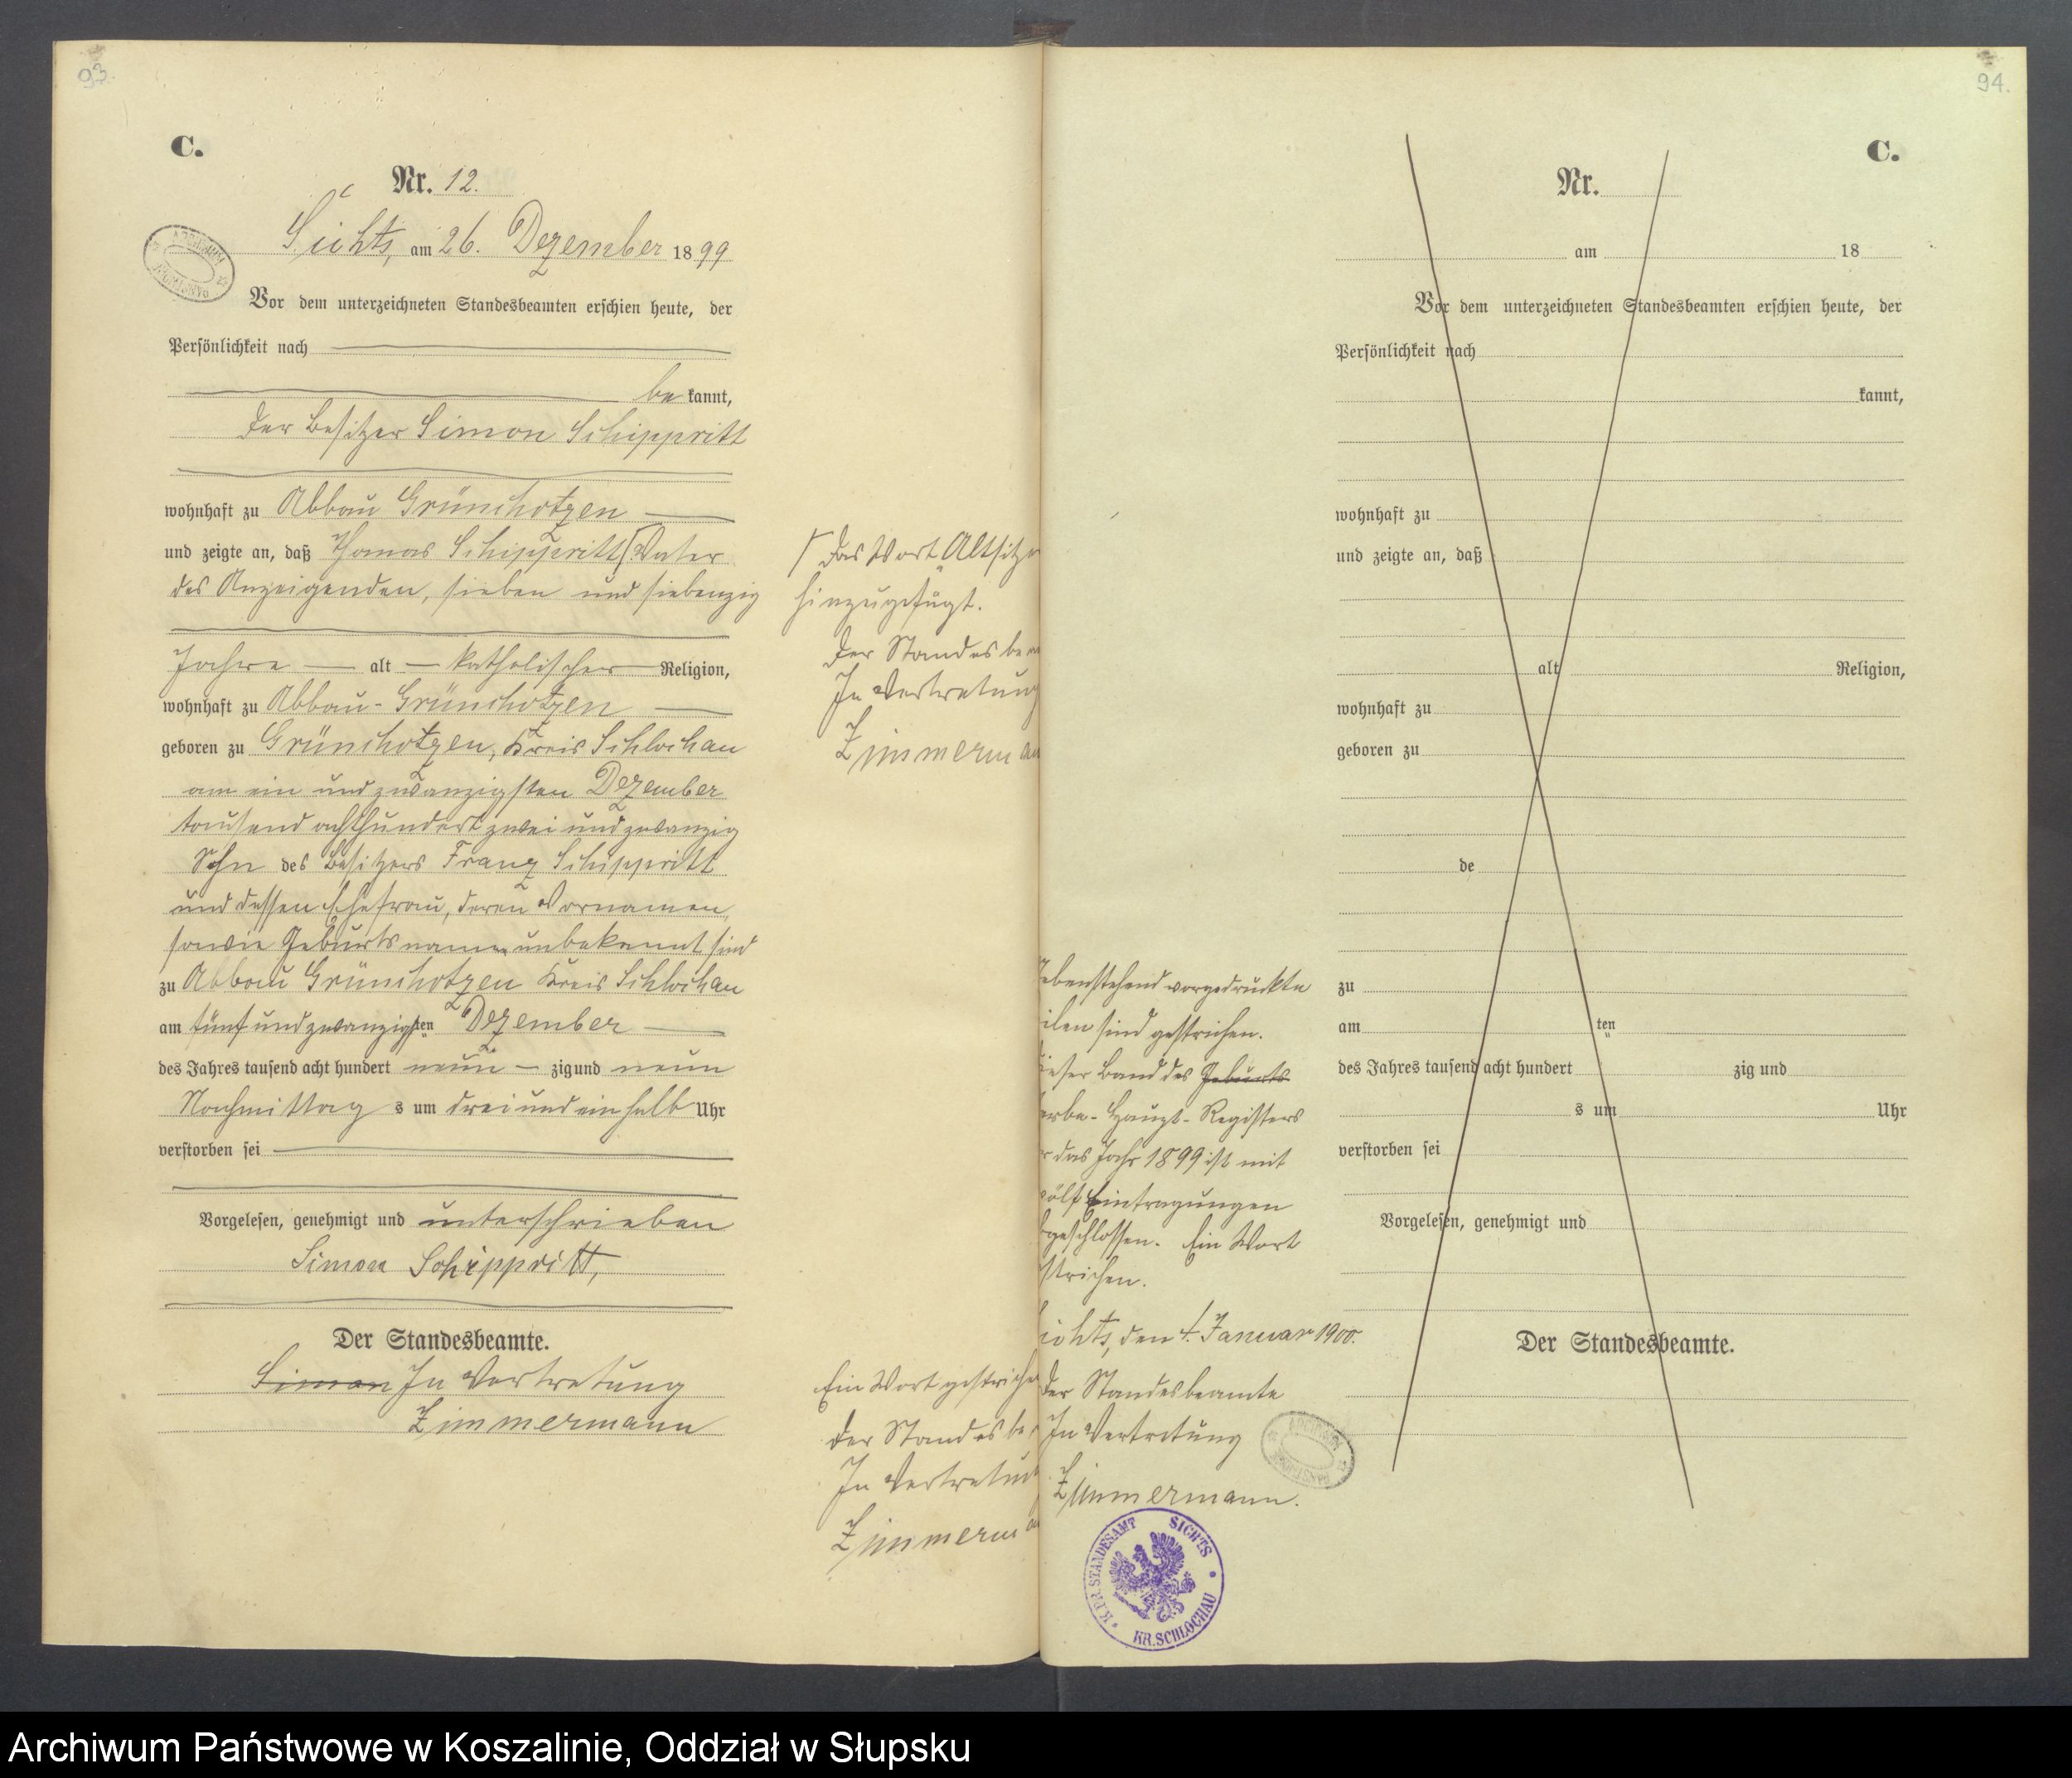 93.
C.
Nr. 12.
Sichts, am 26. Dezember 1899
Vor dem unterzeichneten Standesbeamten erschien heute, der
Persönlichkeit nach
be kannt,
der Besitzer Simon Schippritt
wohnhaft zu Abbau Grünchotzen
und zeigte an, daß Thomas Schippritt, Vater
des Anzeigenden, sieben und siebenzig
Jahre alt katholischer Religion,
wohnhaft zu Abbau-Grünchotzen
geboren zu Grünchotzen, Kreis Schlochau
am ein und zwanzigsten Dezember
tausend achthundert zwei und zwanzig
Sohn des Besitzers Franz Schippritt
und dessen Ehefrau, deren Vornamen,
sowie Geburtsname unbekannt sind
zu Abbau Grünchotzen Kreis Schlochau
am fünf und zwanzigsten Dezember
des Jahres tausend acht hundert neun zig und neun
Nachmittag s um drei und ein halb Uhr
verstorben sei
Vorgelesen, genehmigt und unterschrieben
Simon Schippritt,
Der Standesbeamte.
Simon In Vertretung
Zimmermann
Γ das Wort "Altsitze
hinzugefügt.
Der Standesbea
In Vertretung
Zimmerman
Ein Wort gestriche
Der Standesbe
In Vertretun
Zimmerma
94.
C.
Nr.
am 18
Vor dem unterzeichneten Standesbeamten erschien heute, der
Persönlichkeit nach
kannt,
wohnhaft zu
und zeigte an, daß
alt Religion,
wohnhaft zu
geboren zu
de
zu
am ten
des Jahres tausend acht hundert zig und
s um Uhr
verstorben sei
Vorgelesen, genehmigt und
Der Standesbeamte.
ebenstehend vorgedruckte
ilen sind gestrichen.
ieser Band des Geburts
erbe-Haupt-Registers
r das Jahr 1899 ist mit
ölf Eintragungen
geschlossen. Ein Wort
strichen.
ichts, den 4. Januar 1900.
Der Standesbeamte
In Vertretung
Zimmermann.
K. PR. STANDESAMT SICHTS
KR. SCHLOCHAU
Archiwum Państwowe w Koszalinie, Oddział w Słupsku